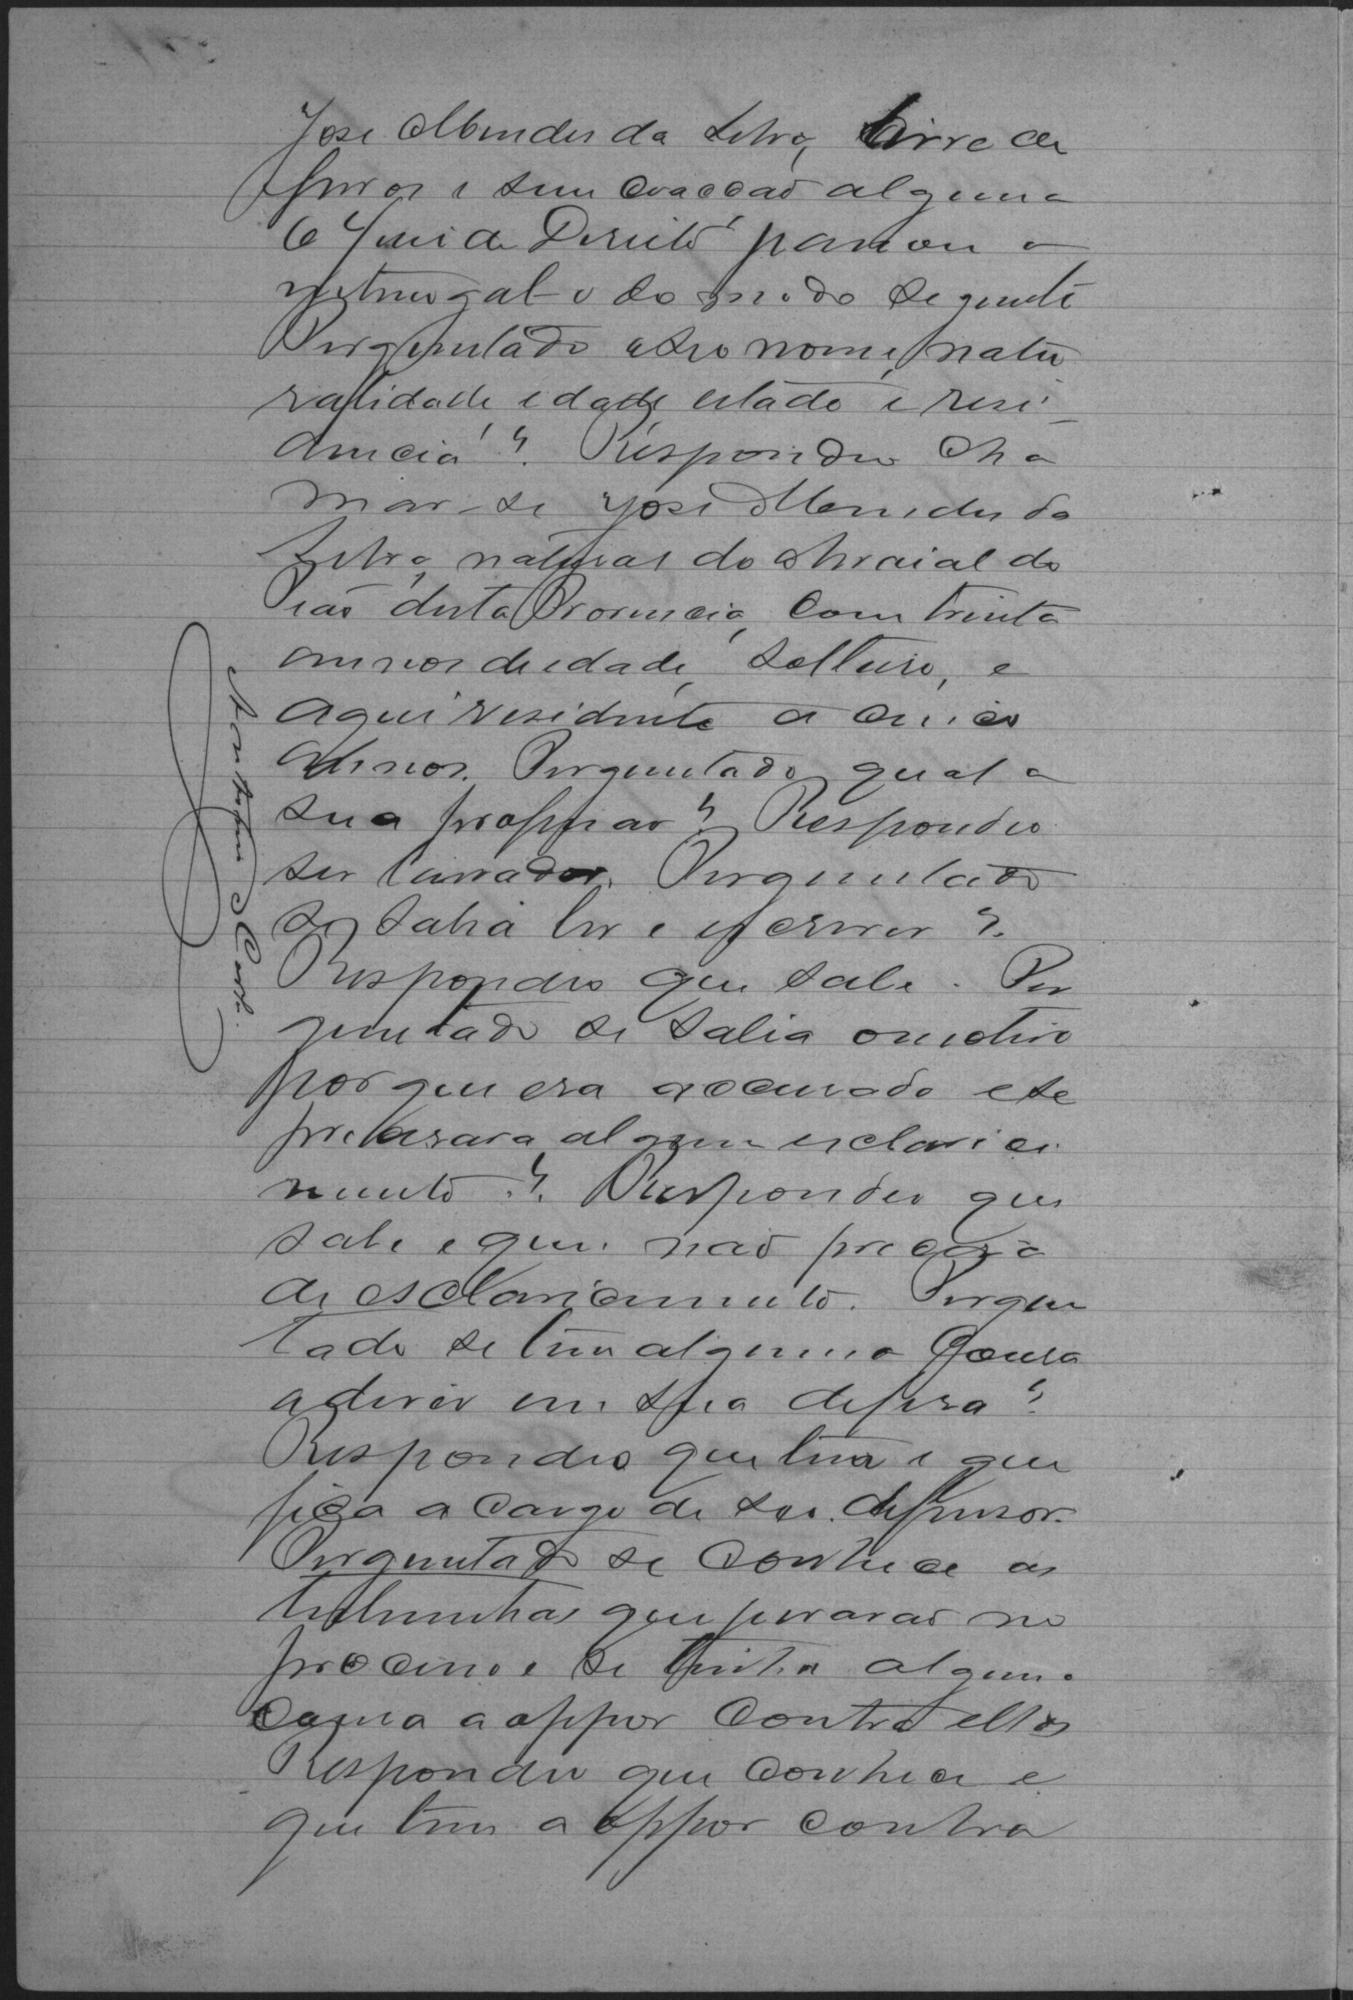 José Mendes da Silva, livre de
ferros e sem coacção alguma
O Juiz de Direito passou a
interrogal-o do modo seguinte
Perguntado o seo nome, natu
ralidade idade estado e resi
dencia? Respondeo cha
mar-se José Mendes da
Silva, natural do Arraial do
desta Provincia, com trinta
annos de edade, solteiro, e
aqui residente a cinco
annos. Perguntado qual a
sua profissão? Respondeo
ser lavrador. Perguntado
se sabia ler e escrever?
Respondeo que sabe. Per
guntado se sabia o motivo
por que era accusado e se
precisava algum esclareci
mento? Respondeo que
sabe e que não precisa
de esclarecimento. Pergun
tado se tem alguma cousa
a dizer em sua defesa?
Respondeo que tem e que
fica a cargo de seo defensor.
Perguntado se conhece as
testemunhas que juraram no
processo e se tinha alguma
cousa a oppor contra ellas
Respondeo que conhece e
que tem a oppor contra
Costa.